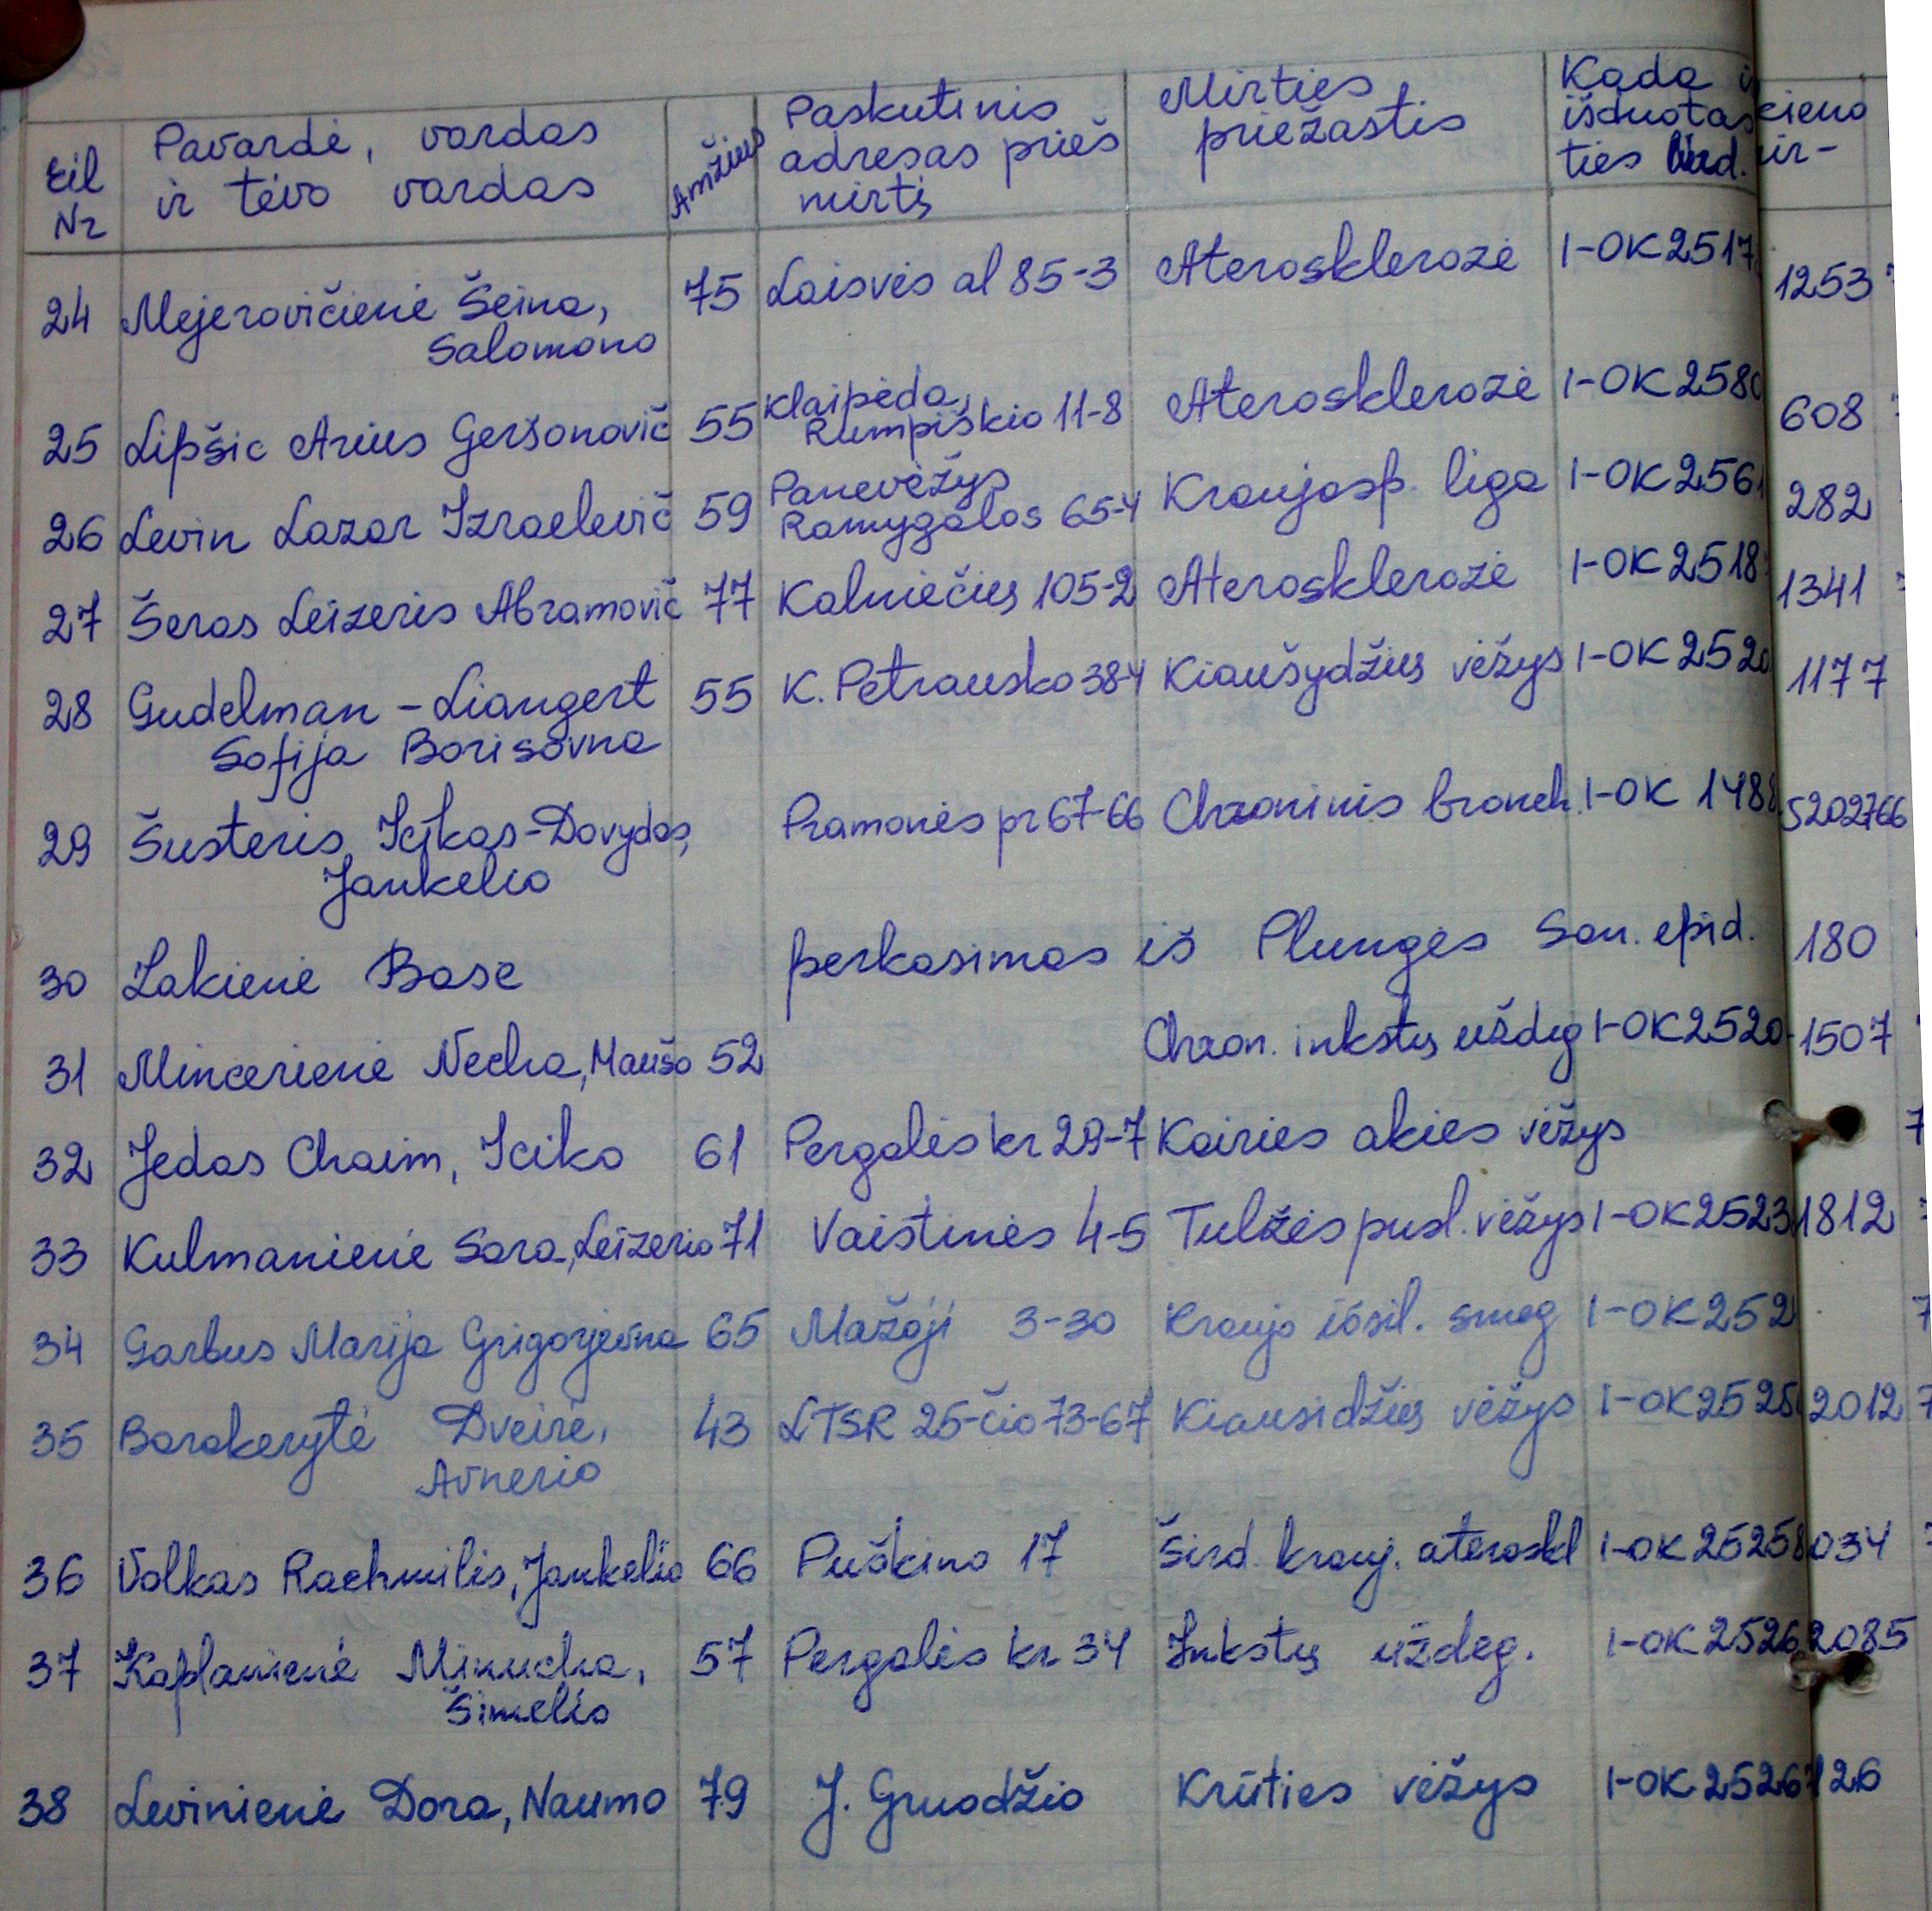 Eil Nr | Pavardė, vardas ir tėvo vardas | Amžius | Paskutinis adresas prieš mirtį | Mirties priežastis | Kada ir kieno išduotas mirties liud.
24 Mejerovičienė Šeina, 75 Laisvės al 85-3 Aterosklerozė I-OK 2517 1253
Salomono
25 Lipšic Arius Geršonovič 55 Klaipėda, Rumpiškio 11-8 Aterosklerozė I-OK 2580 608
26 Levin Lazar Izraelevič 59 Panevėžys Ramygalos 65-4 Kraujosp. liga I-OK 256 282
27 Šeras Leizeris Abramovič 77 Kalniečių 105-2 Aterosklerozė I-OK 2518 1341
28 Gudelman - Liangert 55 K. Petrausko 38-4 Kiaušydžių vėžys I-OK 2520 1177
Sofija Borisovna
29 Šusteris, Icikas-Dovydas, Pramonės pr 67-66 Chroninis bronch. I-OK 148 5202766
Jankelio
30 Zakienė Base perkasimas iš Plungės San. epid. 180
31 Mincerienė Necha, Maušo 52 Chron. inkstų uždeg I-OK 2520 1507
32 Jedas Chaim, Iciko 61 Pergalės kr 29-7 Kairies akies vėžys 7
33 Kulmanienė Sara, Leizerio 71 Vaistinės 4-5 Tulžės pusl. vėžys I-OK 2523 1812
34 Garbus Marija Grigorjevna 65 Mažoji 3-30 Kraujo išsil. smeg I-OK 252 7
35 Barakerytė Dveire, 43 LTSR 25-čio 73-67 Kiausidžių vėžys I-OK 2525 2012 7
Avnerio
36 Volkas Rachmilis, Jankelio 66 Puškino 17 Šird. krauj. ateroskl I-OK 25258034
37 Kaplanienė Minucha, 57 Pergalės kr 34 Inkstų uždeg. I-OK 2526 2085
Šimelio
38 Levinienė Dora, Naumo 79 J. Gruodžio Krūties vėžys I-OK 2526 126